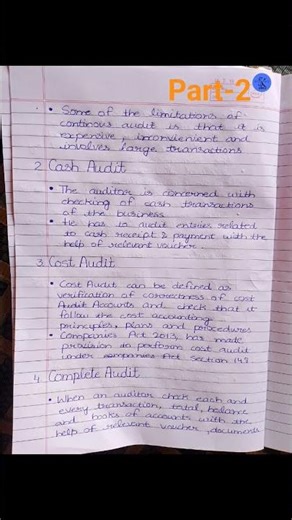 Part-2
• Some of the limitations of
continous audit is that it is
expensive, inconvienient and
involves large transactions
2. Cash Audit
• The auditor is concerned with
checking of cash transactions
of the business
• He has to audit entries related
to cash receipt & payment with the
help of relevant voucher.
3. Cost Audit
• Cost Audit can be defined as
verification of correctness of cost
Audit Accounts and check that it
follow the cost accounting
principles, plans and procedures
• Companies Act 2013, has made
provision to perform cost audit
under companies Act section 148
4. Complete Audit
• When an auditor check each and
every transaction, total, balance
and books of accounts with the
help of relevant voucher, documents